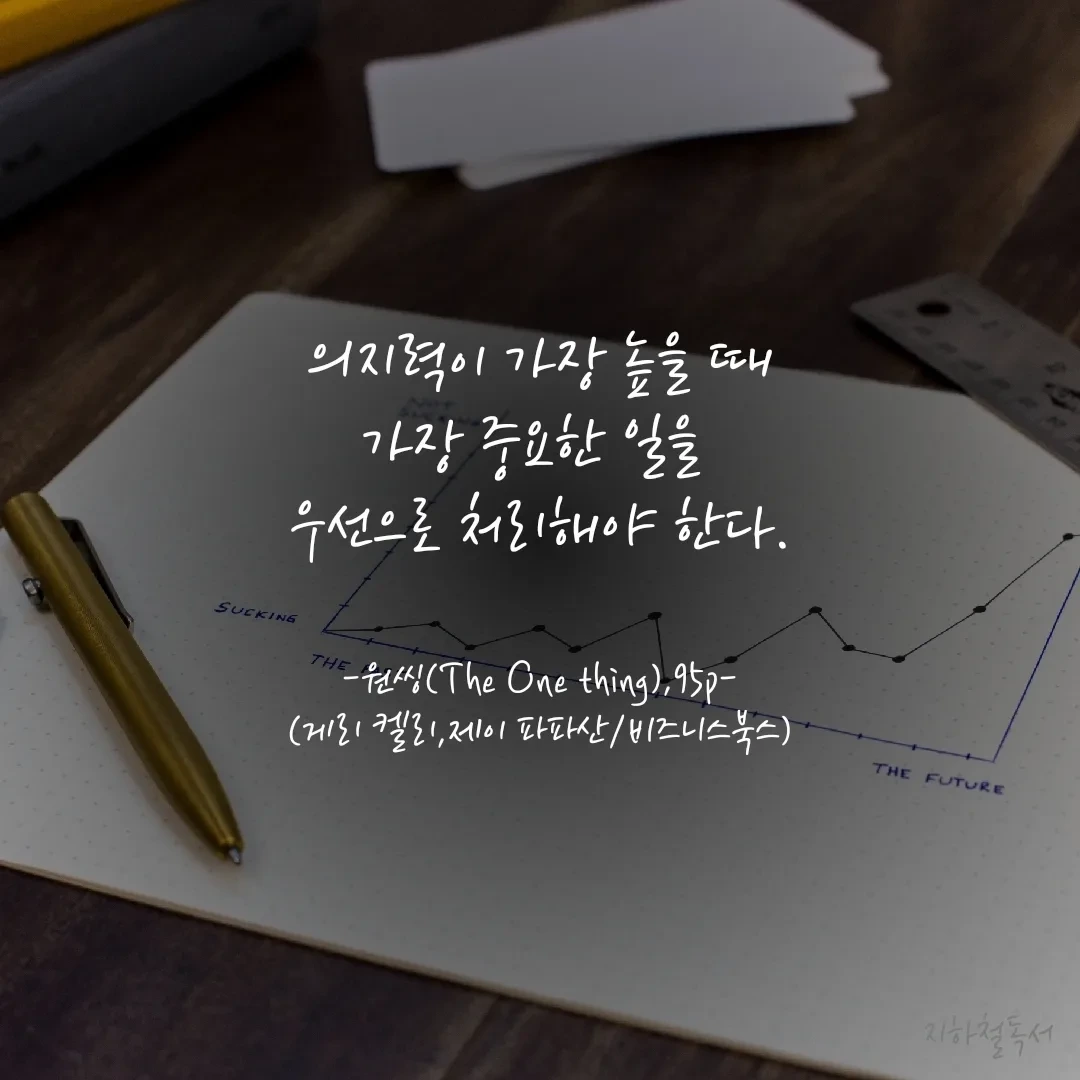 의지력이 가장 높을 때
가장 중요한 일을
우선으로 처리해야 한다.
SUCKING
THE
-원씽(The One thing),95p-
(게리 켈러,제이 파파산/비즈니스북스)
THE FUTURE
지하철독서